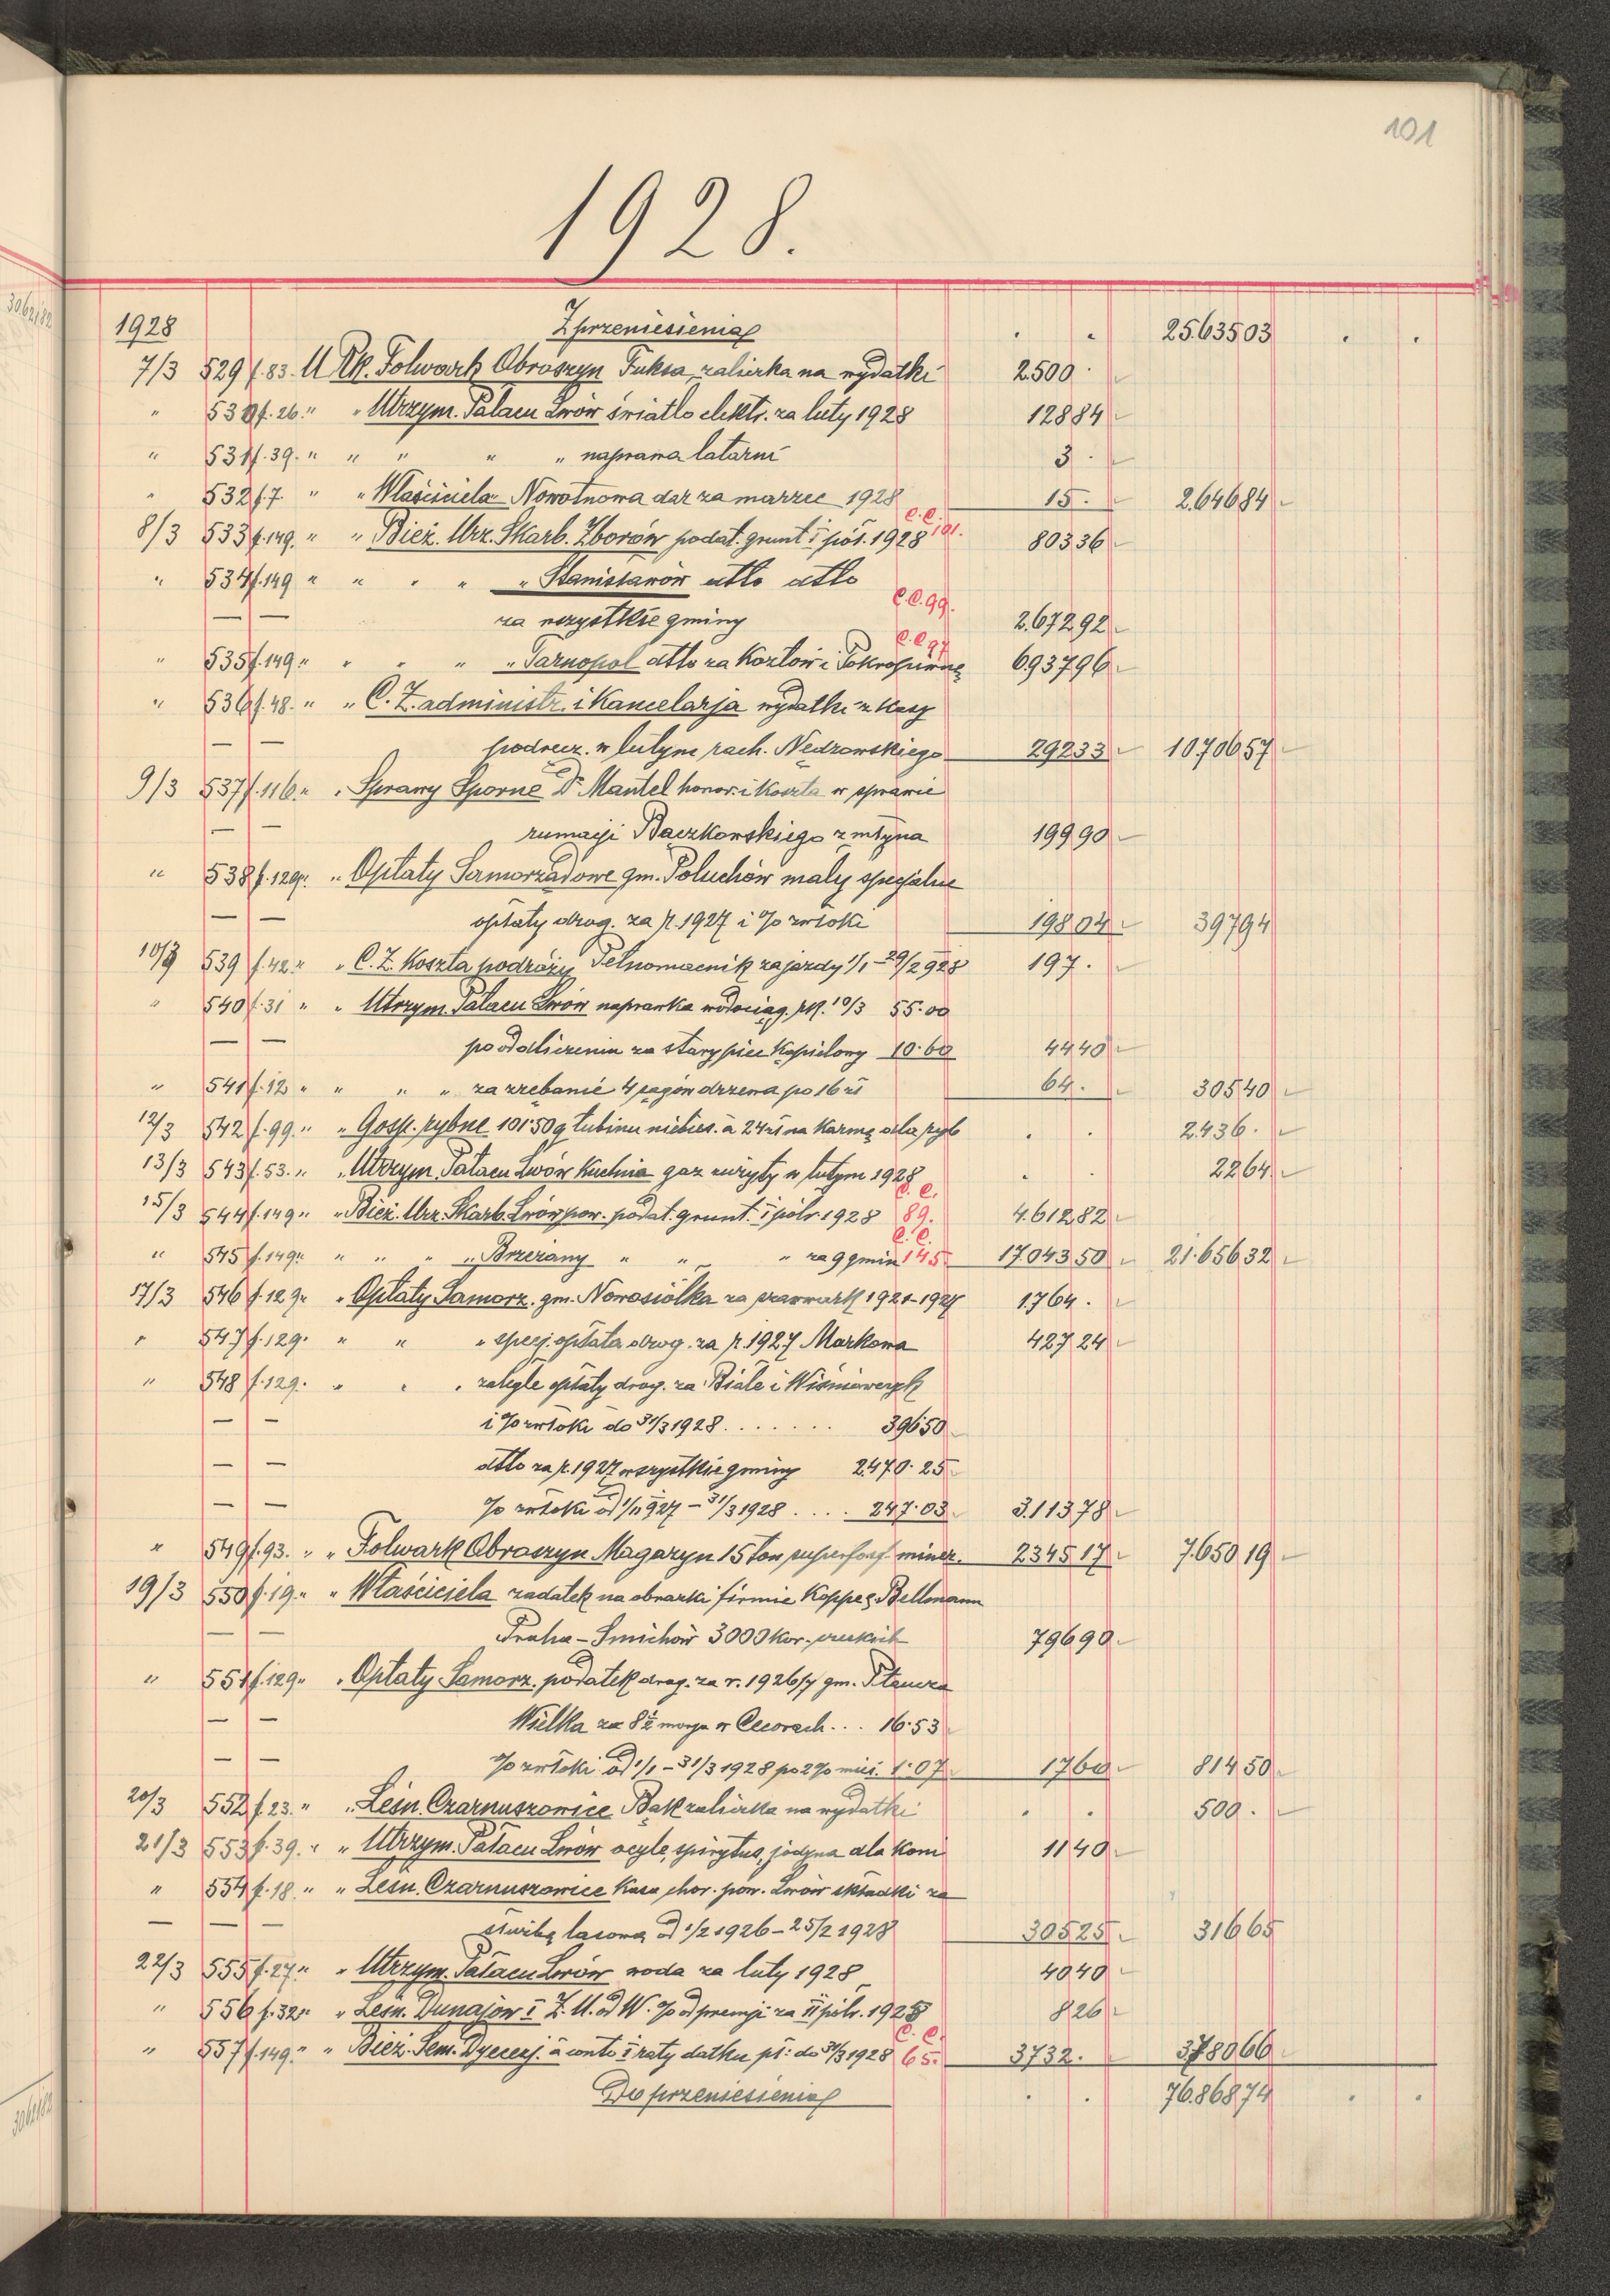 101
1928.
1928 Z przeniesienia . . 25.635 03 . .
7/3 529 f. 83. U Rk. Folwark Obroszyn Fuksa, zaliczka na wydatki 2500 .
" 530 f. 26. " " Utrzym. Pałacu Lwów światło elektr. za luty 1928 128 84
" 531 f. 39. " " " " " naprawa latarni 3 .
" 532 f. 7 " " Właściciela Nowotnowa dar za marzec 1928 15. 2.646 84
8/3 533 f. 149. " " Bież. Urz. Skarb. Zborów podat. grunt. I pół. 1928 C.C. 101. 803 36
" 534 f. 149 " " " " " Stanisławów dtto dtto
— — za wszystkie gminy C.C. 99. 2.672 92
" 535 f. 149 " " " " " Tarnopol dtto za Kozłów i Pokropiwnę C.C. 97 6.937 96
" 536 f. 48. " " C. Z. administr. i Kancelarja wydatki z kasy
— — podręcz. w lutym rach. Nędzowskiego 292 33 10.706 57
9/3 537 f. 116. " " Sprawy Sporne Dr Mantel honor. i koszta w sprawie
— — rumacji Baczkowskiego z młyna 199 90
" 538 f. 129. " " Opłaty Samorządowe gm. Poluchów mały specjalne
— — opłaty drog. za r. 1927 i % zwłoki 198 04 397 94
10/3 539 f. 42. " " C. Z. Koszta podróży Pełnomocnik zajazdy 1/1 – 29/2 928 197.
" 540 f. 31 " " Utrzym. Pałacu Lwów naprawka wodociąg. 10/3 55.00
— — po odliczeniu za stary piec kąpielowy 10.60 44 40
" 541 f. 12 " " " " za zrebanie 4 sągów drzewa po 16 zł 64. 305 40
12/3 542 f. 99. " " Gosp. rybne 101.50 q łubinu niebies. à 24 zł na karmę dla ryb . . 2.436.
13/3 543 f. 53. " " Utrzym. Pałacu Lwów Kuchnia gaz zużyty w lutym 1928 . . 22 64
15/3 544 f. 149 " " Bież. Urz. Skarb. Lwów pow. podat. grunt. I pół. 1928 C.C. 89. 4.612 82
" 545 f. 149. " " " " Brzeżany " " " za 9 gmin C.C. 145. 17.043 50 21.656 32
17/3 546 f. 129. " Opłaty Samorz. gm. Nowosiółka za szarwark 1921–1927 1.764.
" 547 f. 129. " " " specj. opłata drog. za r. 1927 Markowa 427 24
" 548 f. 129. " " " zaległe opłaty drog. za Białe i Wiśniowczyk
— — i % zwłoki do 31/3 1928 . . . . . . . 396.50
— — dtto za r. 1927 wszystkie gminy 2.470.25
— — % zwłoki od 1/11 927 – 31/3 1928 . . . . 247.03 3.113 78
" 549 f. 93. " " Folwark Obroszyn Magazyn 15 ton superfosf. miner. 2345 17 7.650 19
19/3 550 f. 19. " " Właściciela zadatek na obrazki firmie Koppe & Bellmann
— — Praha – Smichów 3000 kor. czeskich 796 90
" 551 f. 129 " " Opłaty Samorz. podatek drog. za r. 1926/7 gm. Płaucza
— — Wielka za 8½ morga w Cecorach . . . 16.53
— — % zwłoki od 1/1 – 31/3 1928 po 2% mies. 1.07 17 60 814 50
20/3 552 f. 23. " " Leśn. Czarnuszowice Bąk zaliczka na wydatki . . 500.
21/3 553 f. 39. " " Utrzym. Pałacu Lwów spirytus, jodyna dla koni 11 40
" 554 f. 18. " " Leśn. Czarnuszowice Kasa chor. pow. Lwów składki za
— — — służbę lasową od 1/2 1926 – 25/2 1928 305 25 316 65
22/3 555 f. 27 " " Utrzym. Pałacu Lwów woda za luty 1928 40 40
" 556 f. 32 " " Leśn. Dunajów I Z. U. od W. % od premji za II półr. 1928 8 26
" 557 f. 149. " " Bież. Sem. Dyecezj. à conto I raty datku pł: do 31/3 1928 C.C. 65. 3732. 3780 66
Do przeniesienia . . 76.868 74 . .